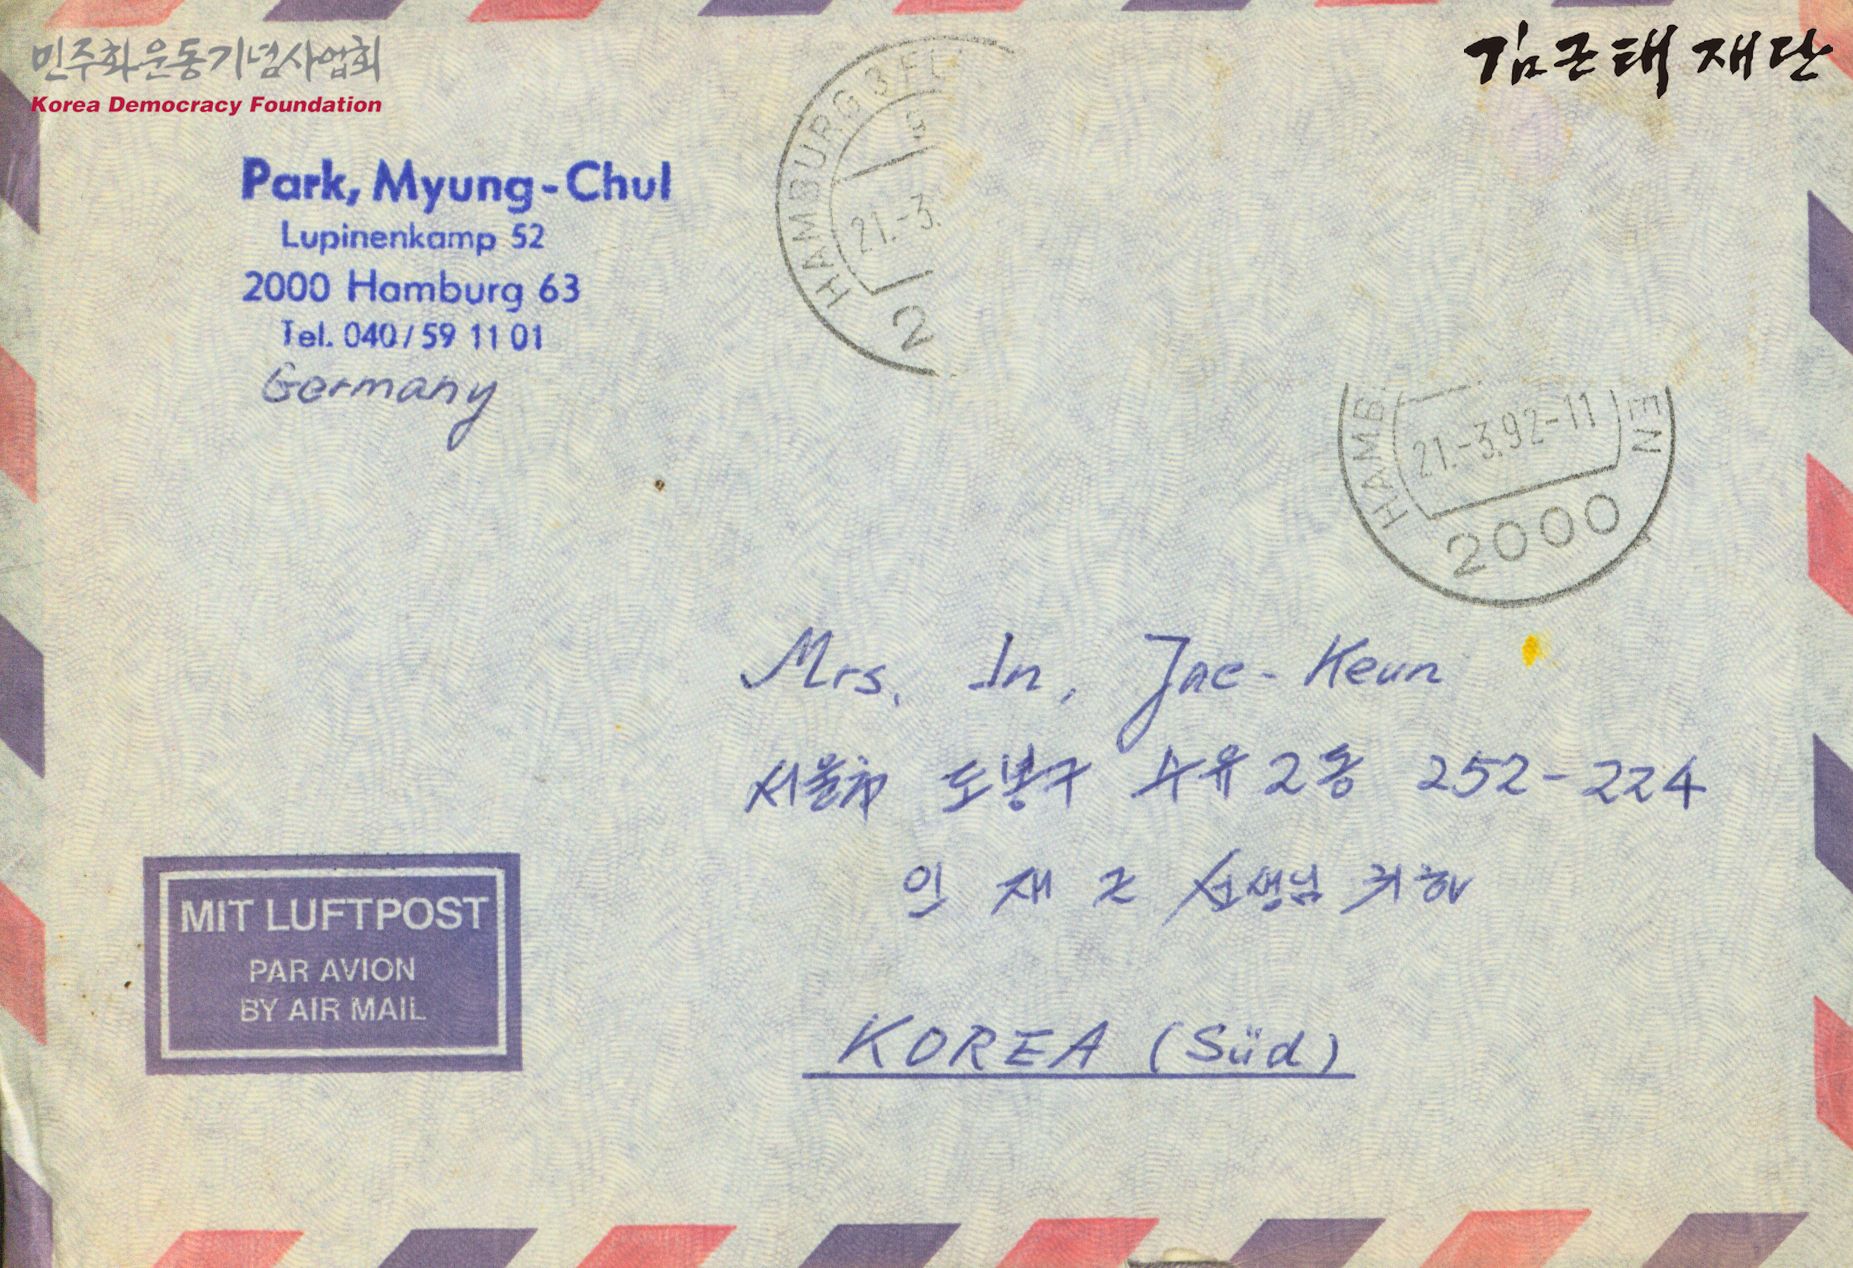 민주화운동기념사업회
Korea Democracy Foundation
김근태재단
Park, Myung-Chul
Lupinenkamp 52
2000 Hamburg 63
Tel. 040/59 11 01
Germany
HAMBURG 3 FL
21.-3.
2
HAMB EN
21.-3.92-11
2000
Mrs. In, Jae-Keun
서울市 도봉구 수유2동 252-224
인 재 근 선생님 귀하
KOREA (Süd)
MIT LUFTPOST
PAR AVION
BY AIR MAIL